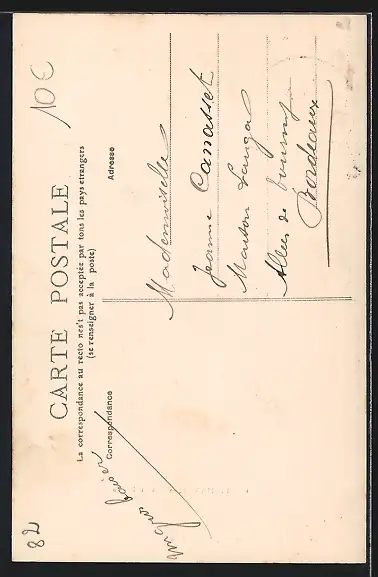 10€
CARTE POSTALE
La correspondance au recto nes't pas acceptée par tous les pays étrangers
(se renseigner à la poste)
Correspondance
Adresse
Mademoiselle
Jeanne Canasset
Maison
Allées de Tourny
Bordeaux
82